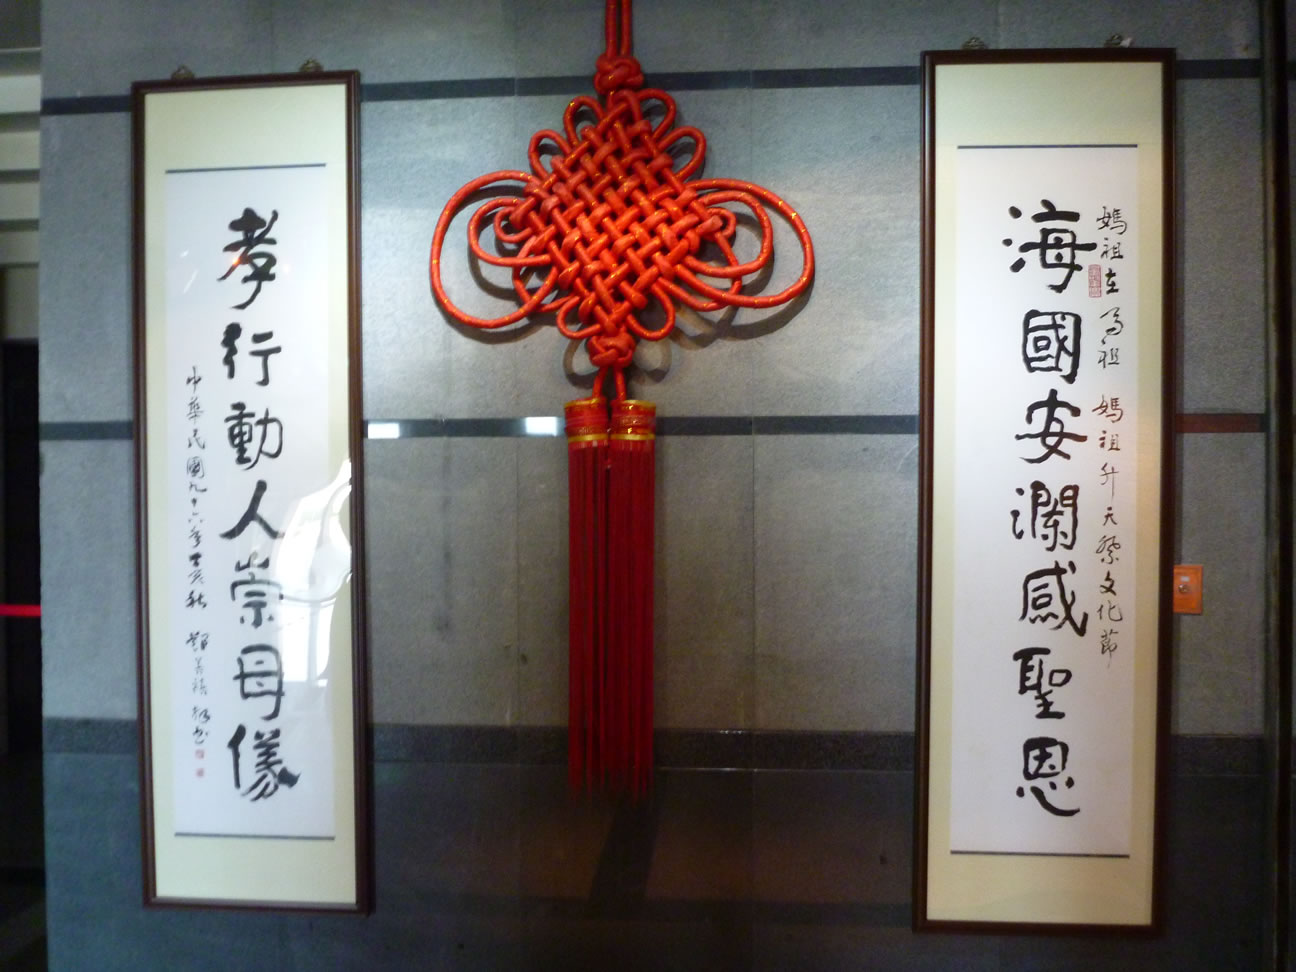 媽祖在馬祖 媽祖升天祭文化節
海國安瀾感聖恩
孝行動人崇母儀
中華民國九十六年丁亥秋